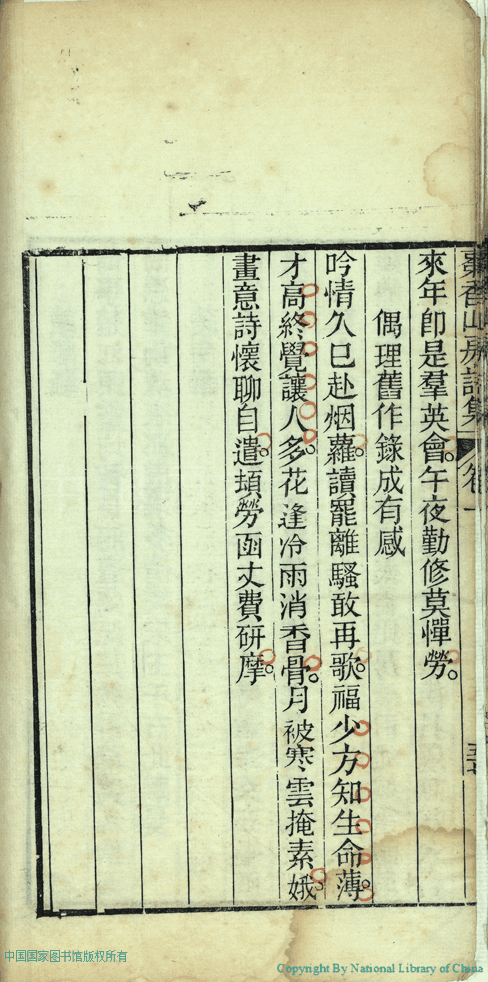 香山房詩集 卷一
來年卽是羣英會。午夜勤修莫憚勞。
偶理舊作錄成有感
吟情久已赴烟蘿。讀罷離騷敢再歌。福少方知生命薄。
才高終覺讓人多。花逢冷雨消香骨。月被寒雲掩素娥。
畫意詩懷聊自遣。頻勞函丈費研摩。
中国国家图书馆版权所有
Copyright By National Library of China